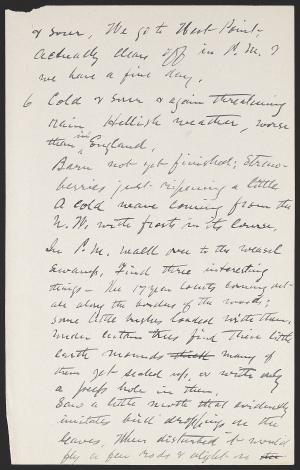 & sour, We go to West Point;
actually clears off in P.M. &
we have a fine day.
6 Cold & sour & again threatening
rain. Hellish weather, worse
than in England.
Barn not yet finished; straw-
berries just ripening a little
A cold wave coming from the
N.W. with frosts in its course,
In P.M. walk over to the
swamp, Find three interesting
things - the 17 year locusts coming out
all along the borders of the woods;
some little bushes loaded with them.
Under certain trees find their little
earth mounds many of
them yet sealed up, or with only
a peep hole in them.
Saw a little moth that evidently
imitates bird droppings on the
leaves, When disturbed it would
fly a few rods & alight on